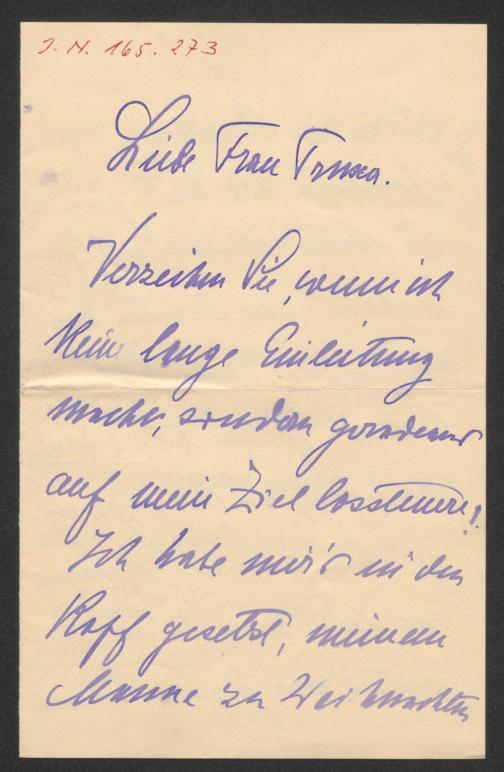 I. N. 165.273
Liebe Frau Truxa.
Verzeihen Sie, wenn ich
keine lange Einleitung
mache, sondern geradeaus
auf mein Ziel lossteure!
Ich habe mir's in den
Kopf gesetzt, meinem
Manne zu Weihnachten